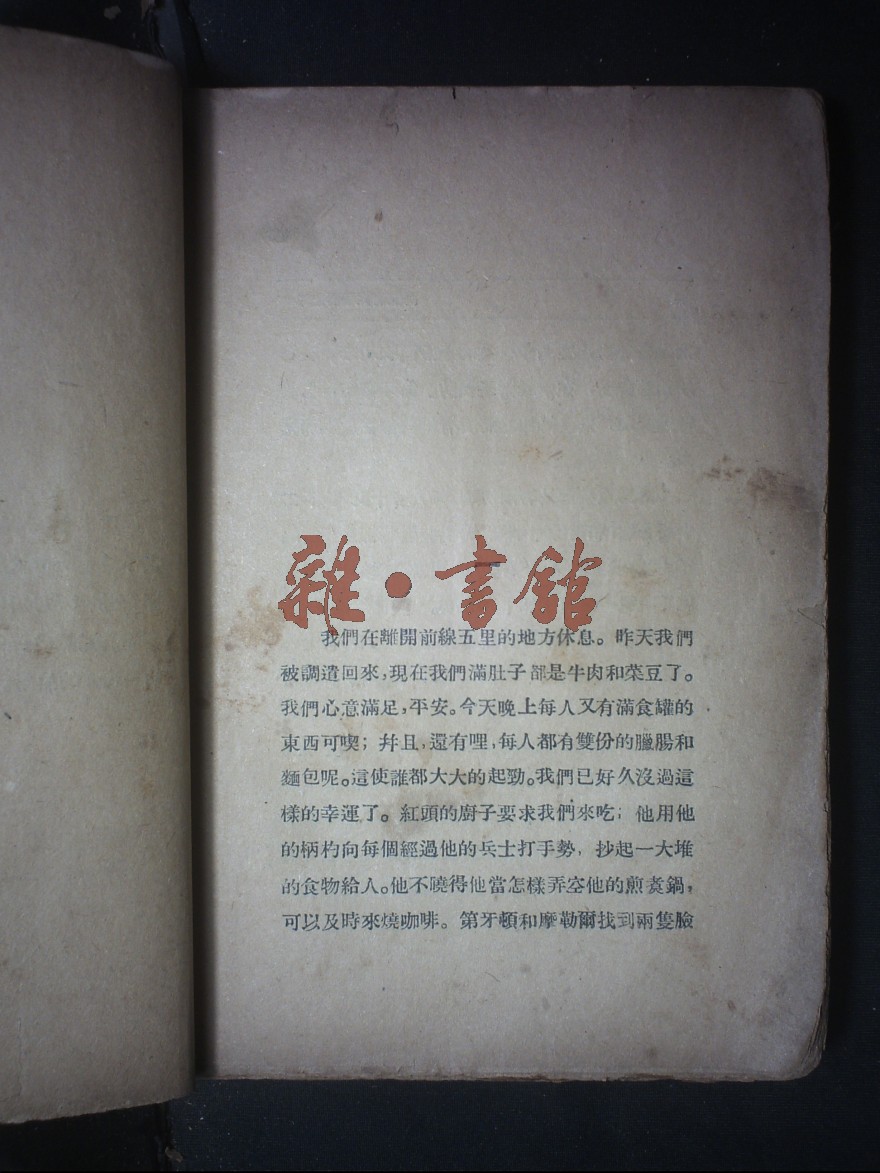 雜·書館
我們在離開前線五里的地方休息。昨天我們
被調遣回來,現在我們滿肚子都是牛肉和菜豆了。
我們心意滿足,平安。今天晚上每人又有滿食罐的
東西可喫;幷且,還有哩,每人都有雙份的臘腸和
麵包呢。這使誰都大大的起勁。我們已好久沒過這
樣的幸運了。紅頭的廚子要求我們來吃;他用他
的柄杓向每個經過他的兵士打手勢,抄起一大堆
的食物給人。他不曉得他當怎樣弄空他的煎煑鍋,
可以及時來燒咖啡。第牙頓和摩勒爾找到兩隻臉